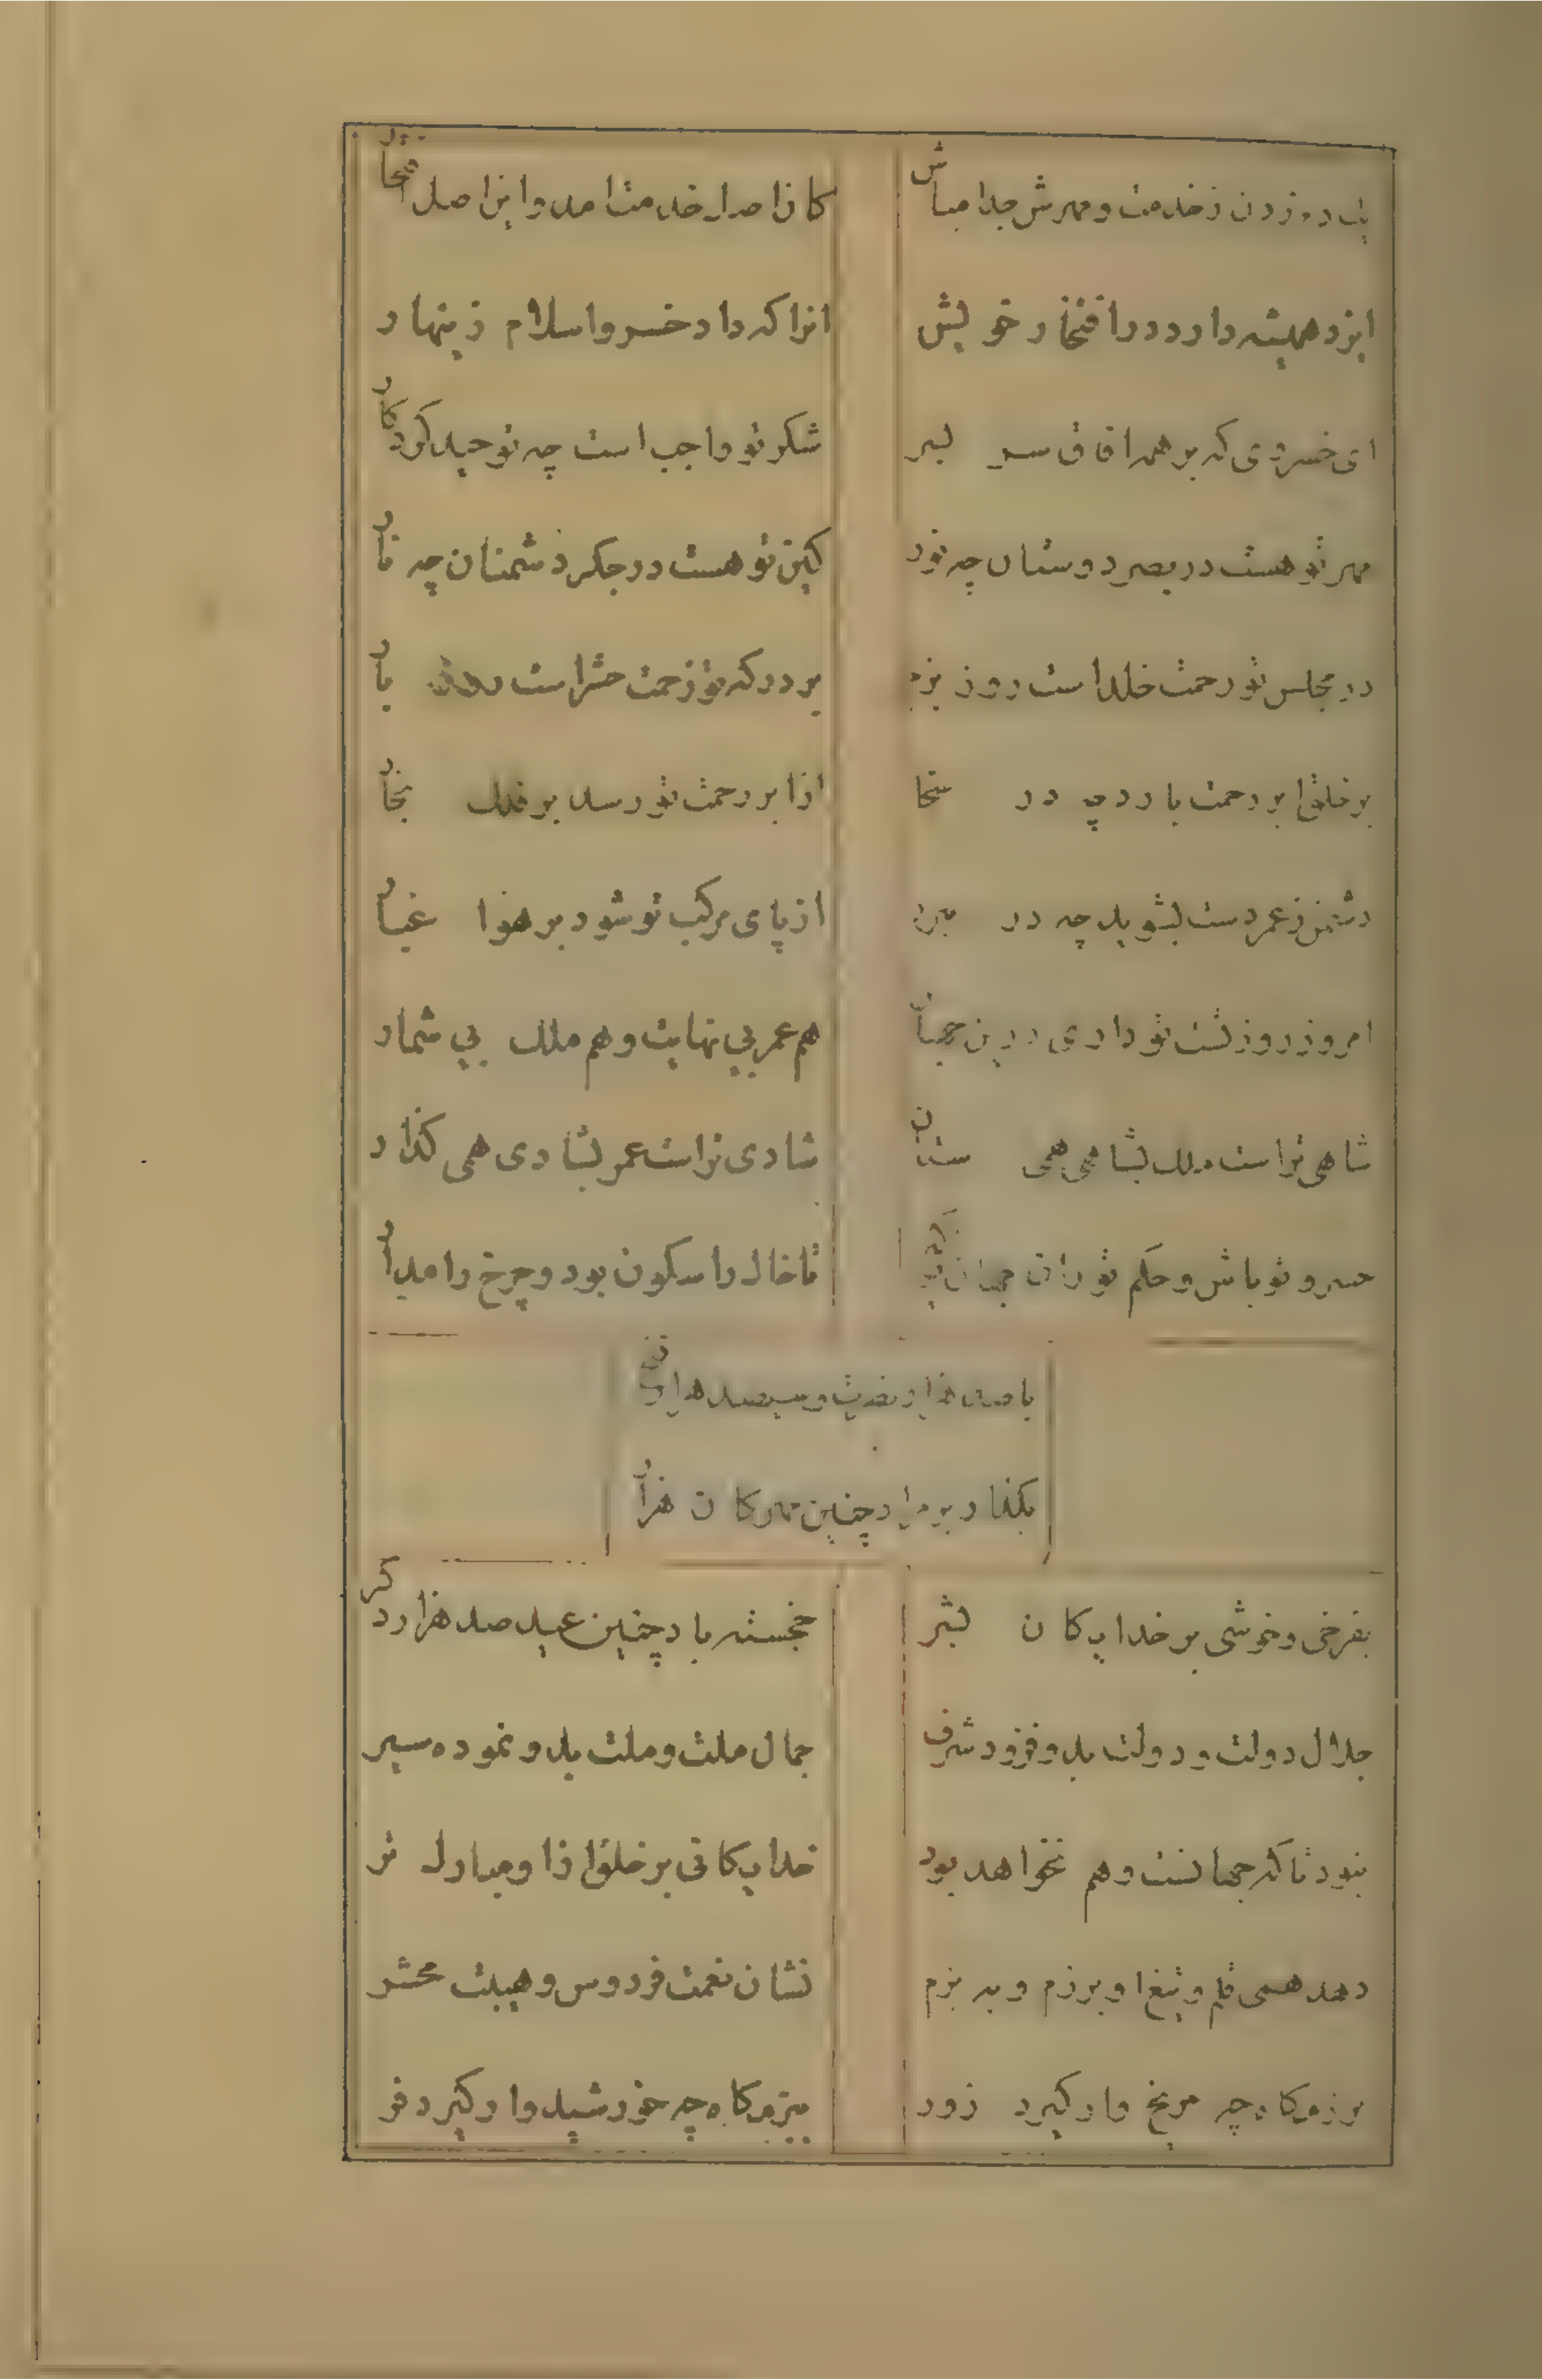 یک دم زدن ز خدمت و مهرش جدا مباش کان اصل خدمت امد و این اصل افتخار
ایزد همیشه دارد در افتخار خویش انرا که داد خسرو اسلام زینهار
ای خسروی که بر همه افاق سر بسر شکر تو واجب است چه توحید کردکار
مهر تو هست در بصر دوستان چه نور کین تو هست در جکر دشمنان چه نار
در مجلس تو رحمت خلد است روز بزم بر درکه تو زحمت حشر است بار
بر خلق ابر رحمت بارد چه در سخا از ابر رحمت تو رسد بر فلک بخار
دشمن ز عمر دست بشوید چه در از پای مرکب تو شود بر هوا غبار
امروز روز تست تو داری درین جهان هم عمر بی نهایت و هم ملک بی شمار
شاهی تراست ملک بشاهی همی ستان شادی تراست عمر بشادی همی کذار
خسرو تو باش و حکم تو ران جهان تا خاک را سکون بود و چرخ را مدار
با صد هزار نصرت و سیصد هزار
بکذار بر مراد چنین مهرکان هزار
بفرخی و خوشی بر خدایکان بشر خجسته باد چنین عید صد هزار دکر
جلال دولت و دولت بدو فزوده شرف جمال ملت و ملت بدو نموده سیر
نبود تا که جهانست و هم نخواهد بود خدایکانی بر خلق ازو مبارک تر
دهد همی قلم و تیغ او برزم و به بزم نشان نعمت فردوس و هیبت محشر
برزمکاه چه مریخ وار کیرد زور ببزمکاه چه خورشید وار کیرد فر